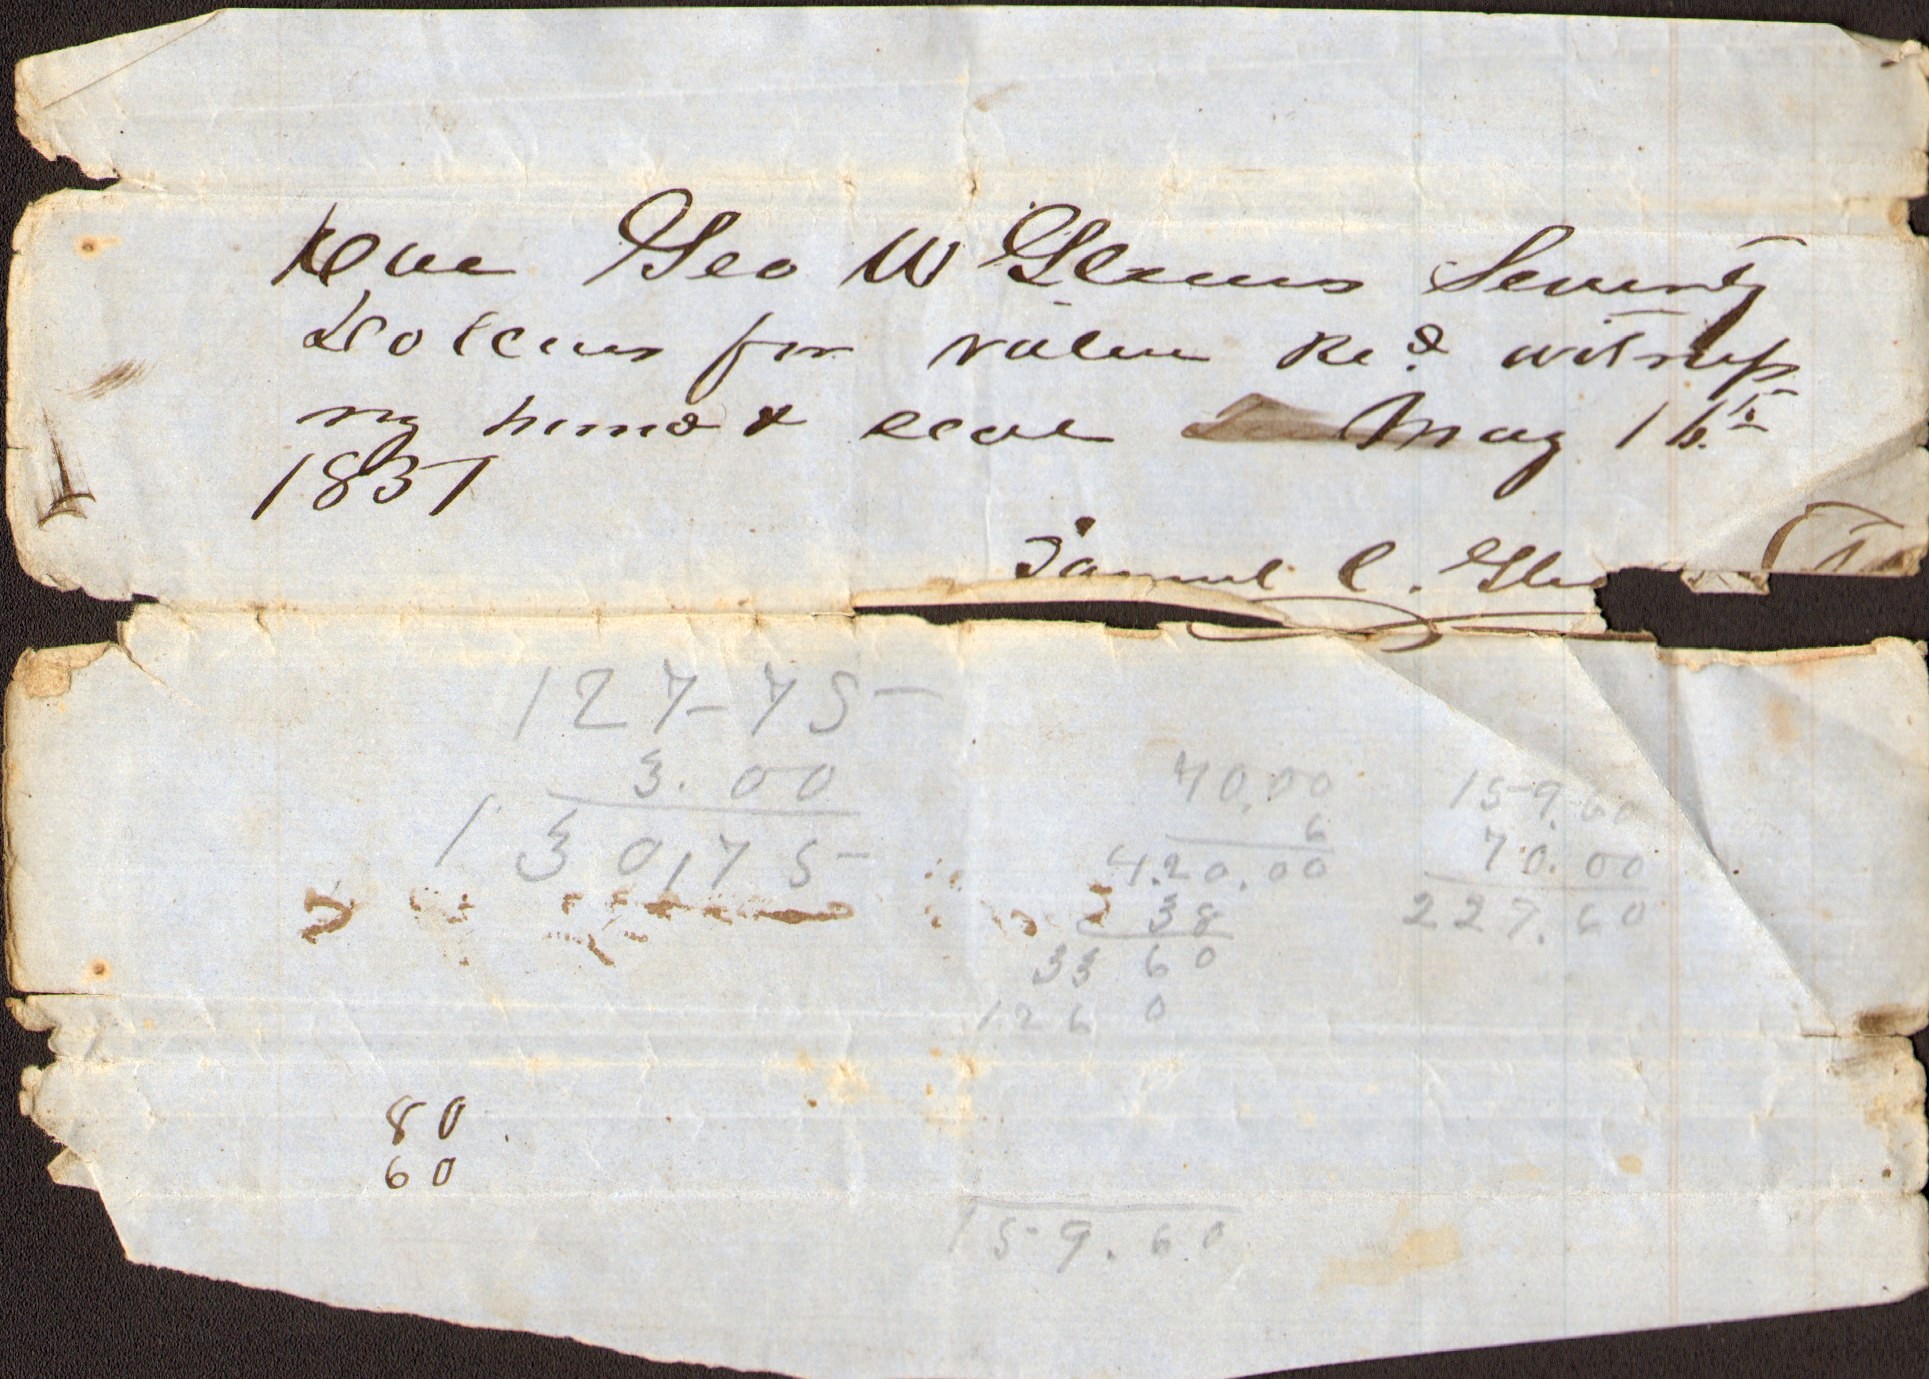 Due Geo W Glenns Seventy
Dollars for value Recd witness
my hand & seal May 16th
1857
Samuel C. Gle
127-75
3.00
130,75
70.00
6
420.00
38
3360
1260
159.60
159.60
70.00
229.60
80
60